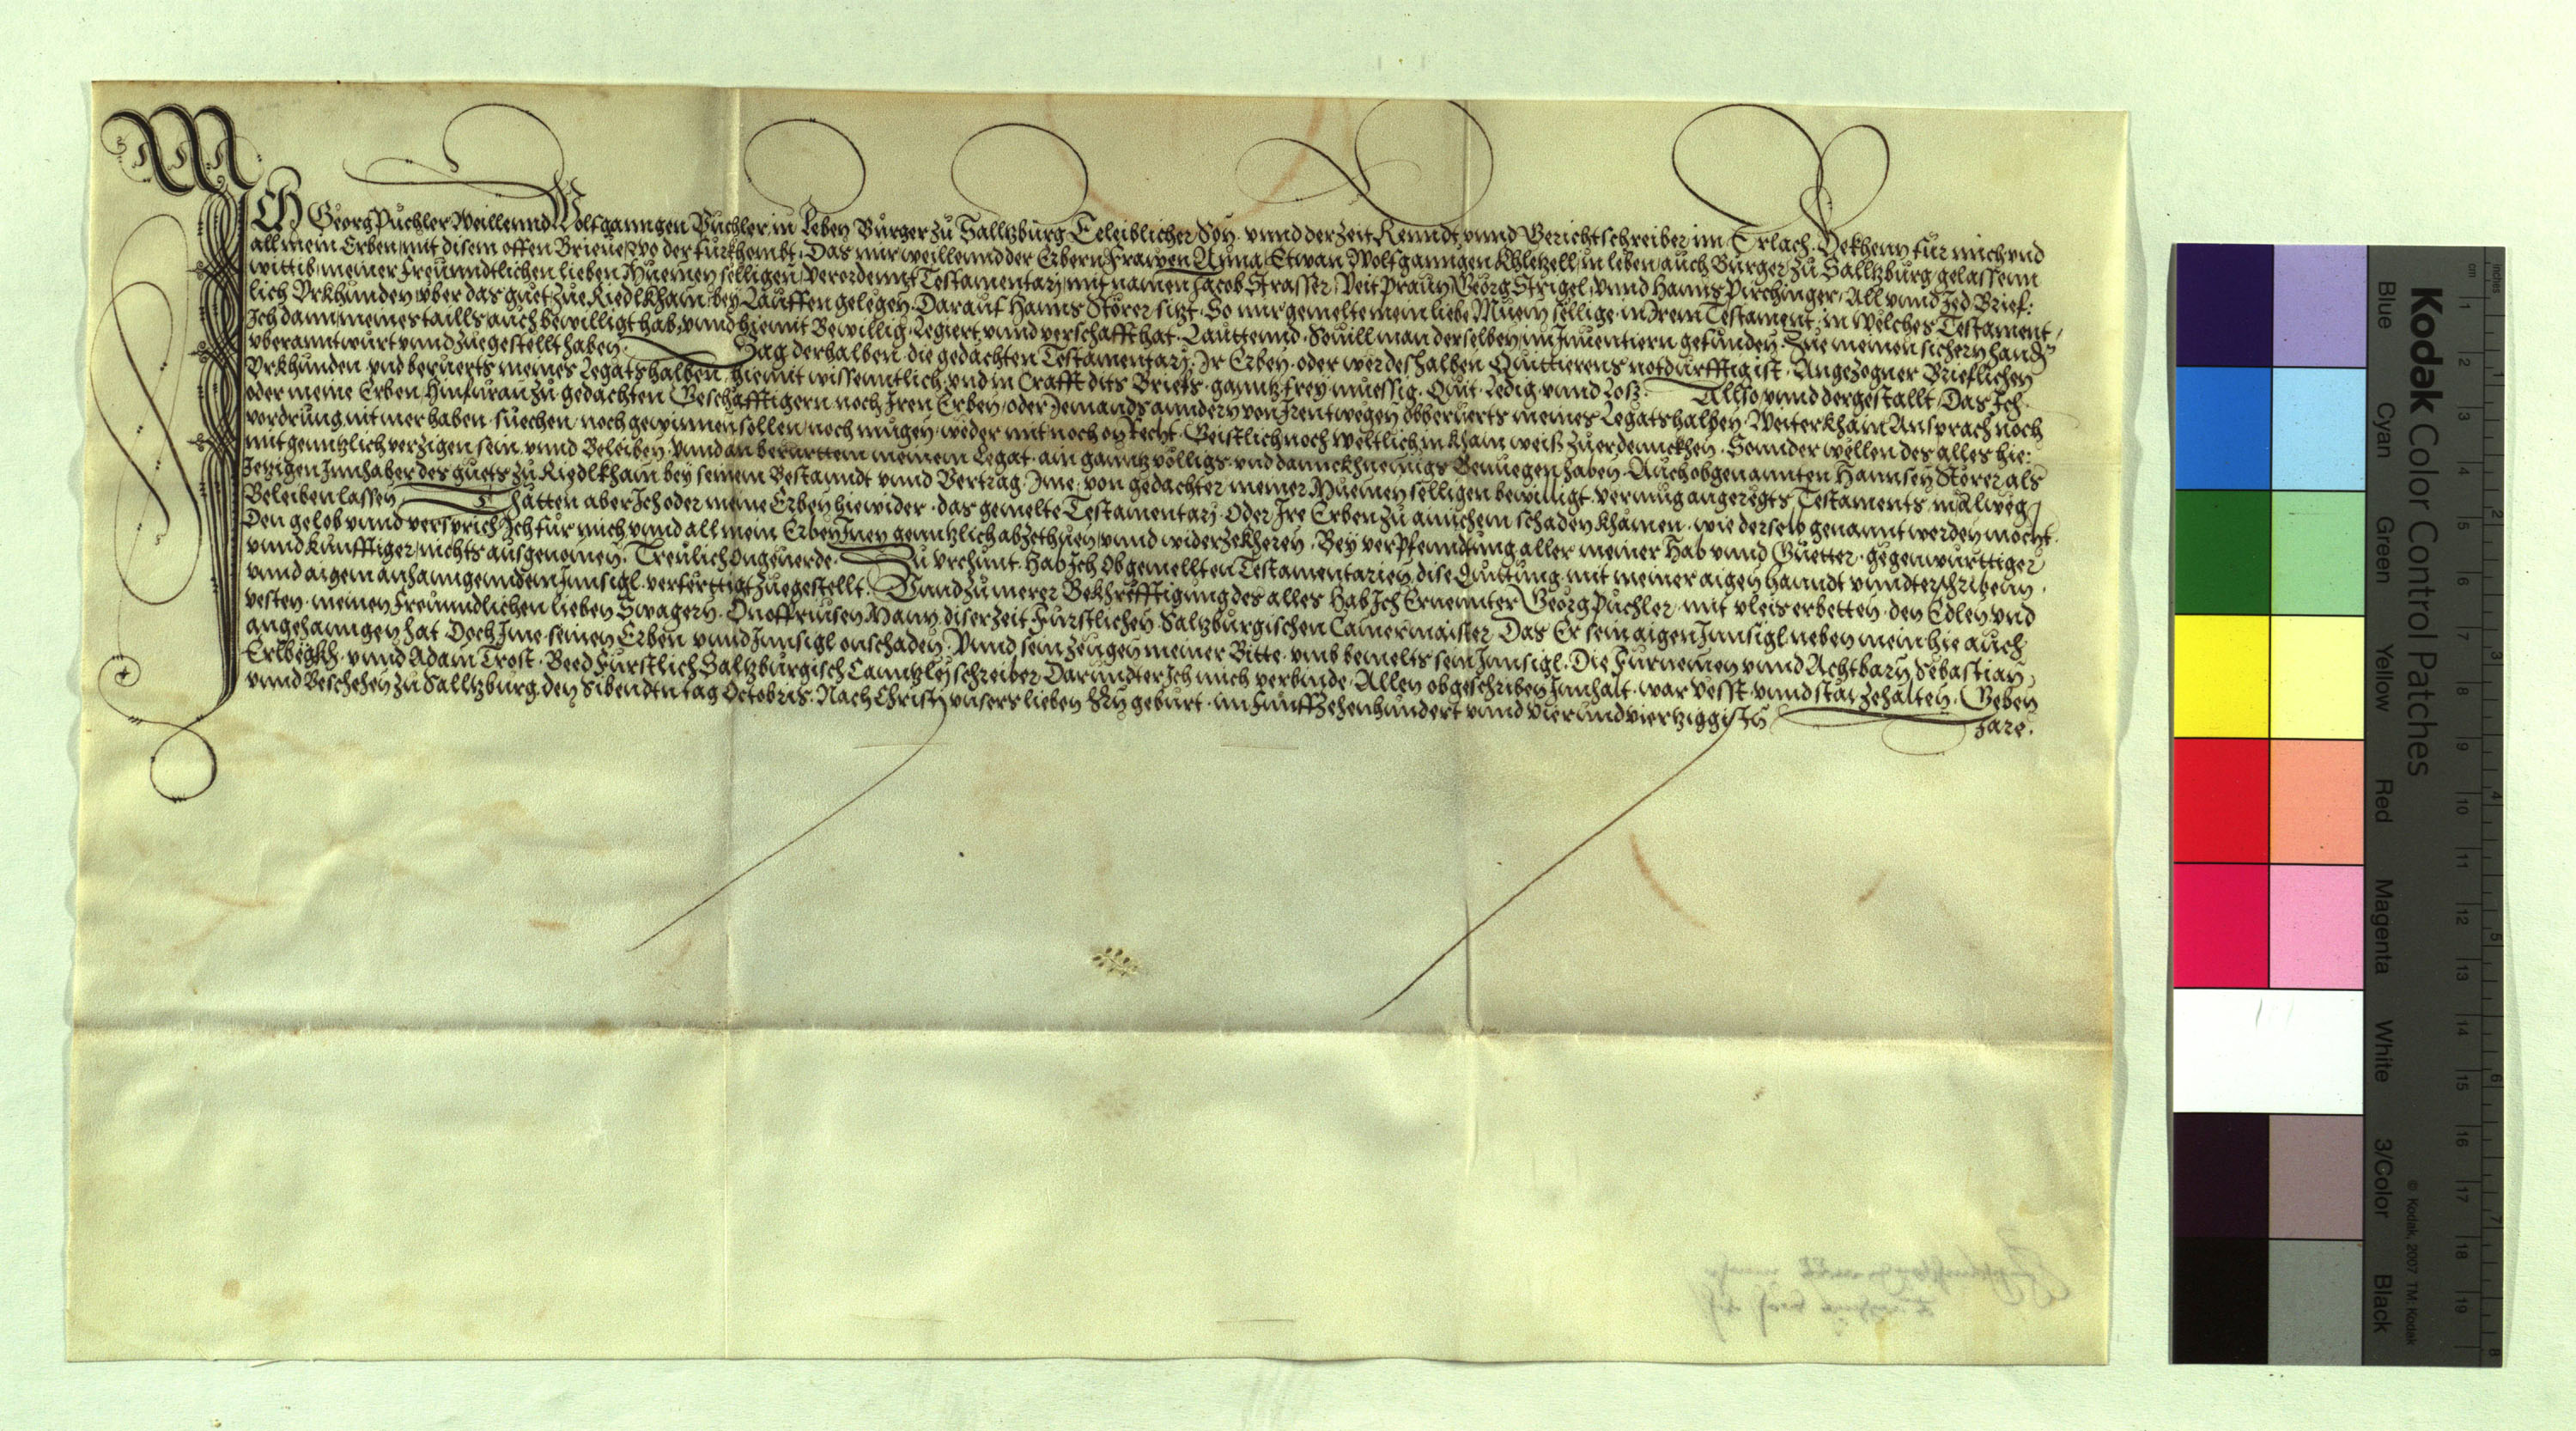 ICH Georg Püchler Weillennd Wolfganngen Püchler in Leben Bürger zü Salltzbürg Eeleiblicher Son · vnnd der zeit Renndt vnnd Gerichtschreiber im Erlach · Bekhenn für mich vnd
all mein Erben mit disem offen Brieue, wo der fürkhombt · Das mir weillennd der Erbern Frawen Anna, Etwan Wolfganngen Khletzell, in leben aüch Bürger zü Salltzbürg gelassenn
wittib, meiner freünndtlichen lieben Muemen selligen, Verordennt Testamentarj, mit namen Jacob Strasser, Veit Praün, Georg Strigel, vnnd Hanns Pirchinger, All vnnd Jed Brief:
lich Vrkhunden über das guet züe Riedlkham, bey Laüffen gelegen · Daraüf Hanns Störer sitzt · So mir gemelte mein liebe Muem sellige, in Irem Testament, in welches Testament,
Ich dann meines taills aüch bewilligt hab, vnnd hiemit Bewillig, Legiert vnnd verschafft hat · Laüttennd · Souill man derselben im Inuentiern gefünden · Züe meinen sichern hanndn
überanntwürt vnnd züegestellt haben · Sag derhalben die gedachten Testamentarj, Ir Erben, oder wer deshalben Quittierens notdürfftig ist · Angezogner Brieflichen
Vrkhünden, vnd berüerts meines Legats halben, hiemit wissenntlich, vnd in Crafft dits Briefs, ganntz frey müessig · Quit · Ledig vnnd Loß · Allso vnnd dergestallt, Das Ich
oder meine Erben, Hinfüran zü gedachten Geschäfftigern noch Iren Erben, oder Jemands anndern von Irent wegen, obberüerts meines Legats halben, Weiter kham Ansprach noch
vordrüng nit mer haben, süechen, noch gewinnen sollen, noch mügen, weder mit noch on Recht, Geistlich noch Weltlich in kham weiß zü erdennckhen, Sonnder wellen des alles hie:
mit genntzlich verzigen sein, vnnd Beleiben, Vnnd an berürttem meinem Legat, ain ganntz völligs, vnd dannckhnemigs Benuegen haben, Aüch obgenannten Hannsen Störer als
Jetzigen Innhaber des guets zü Riedlkham bey seinem Bestanndt vnnd Vertrag, Ime von gedachter meiner Muemen selligen bewilligt, vermüg angeregts Testaments, in allweg,
Beleiben lassen · Thätten aber Ich oder meine Erben hiewider, das gemelte Testamentarj, Oder Ire Erben zü ainichem schaden khämen, wie derselb genannt werden möcht ·
Den gelob vnnd versprich Ich für mich vnnd all mein Erben Inen genntzlich abzethuen, vnnd widerzekheren, Bey verpfenndtüng aller meiner Hab vnnd Güetter, gegenwürttiger
vnnd künfftiger, nichts aüsgenomen, Treülich on geuerde · Zu vrchunt, Hab Ich Obgemellten Testamentarien, dise Quittüng, mit meiner aigen hanndt vnndterschribenn,
vnnd aigem anhanngenndem Innsigl, verferttigt züegestellt · Vnnd zü merer Bekhrefftigüng des alles Hab Ich Ernennter Georg Püchler, mit vleis erbetten, den Edlen vnd
vesten, meinen freünndlichen lieben Swagern, Onoffriusen Mann, diser zeit Fürstlichen Saltzbürgischen Camermaister, Das Er sein aigen Innsigl neben mein hie aüch
angehanngen hat, Doch Ime, seinen Erben vnnd Innsigl on schaden · Vnnd sein zeügen meiner Bitte, vmb bemelts sein Innsigl, Die Fürnemen vnnd Achtbarn, Sebastian
Erlbegkh, vnnd Adam Trost, Beed Fürstlich Saltzbürgisch Canntzleyschreiber, Darunder Ich mich verbinde, Allen obgeschriben Innhalt, war vesst, vnnd stät zehalten, Geben
vnnd Beschehen zü Salltzbürg, den Sibendtn tag Octobris · Nach Christj vnsers lieben Hrn gebürt, im Fünffzehenhündert vnnd Vierundviertziggistn
Jare ·
Kodak Color Control Patches
Blue Cyan Green Yellow Red Magenta White 3/Color Black
© Kodak, 2007 TM: Kodak
cm 1 2 3 4 5 6 7 8 9 10 11 12 13 14 15 16 17 18 19
inches 1 2 3 4 5 6 7 8